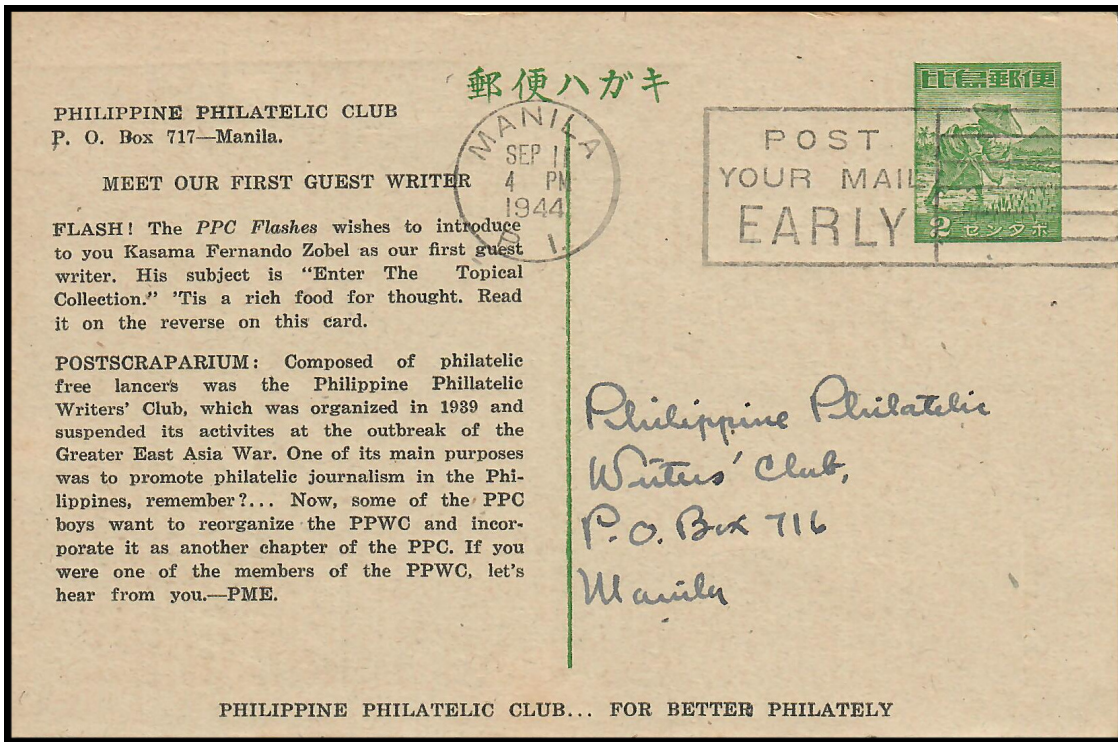 郵便ハガキ
比島郵便
2 センタボ
PHILIPPINE PHILATELIC CLUB
P. O. Box 717—Manila.
MANILA
SEP 11
4 PM
1944
P. I.
POST
YOUR MAIL
EARLY
MEET OUR FIRST GUEST WRITER
FLASH! The PPC Flashes wishes to introduce
to you Kasama Fernando Zobel as our first guest
writer. His subject is "Enter The Topical
Collection." 'Tis a rich food for thought. Read
it on the reverse on this card.
POSTSCRAPARIUM: Composed of philatelic
free lancers was the Philippine Phillatelic
Writers' Club, which was organized in 1939 and
suspended its activites at the outbreak of the
Greater East Asia War. One of its main purposes
was to promote philatelic journalism in the Phi-
lippines, remember?... Now, some of the PPC
boys want to reorganize the PPWC and incor-
porate it as another chapter of the PPC. If you
were one of the members of the PPWC, let's
hear from you.—PME.
Philippine Philatelic
Writers' Club,
P.O. Box 716
Manila
PHILIPPINE PHILATELIC CLUB... FOR BETTER PHILATELY